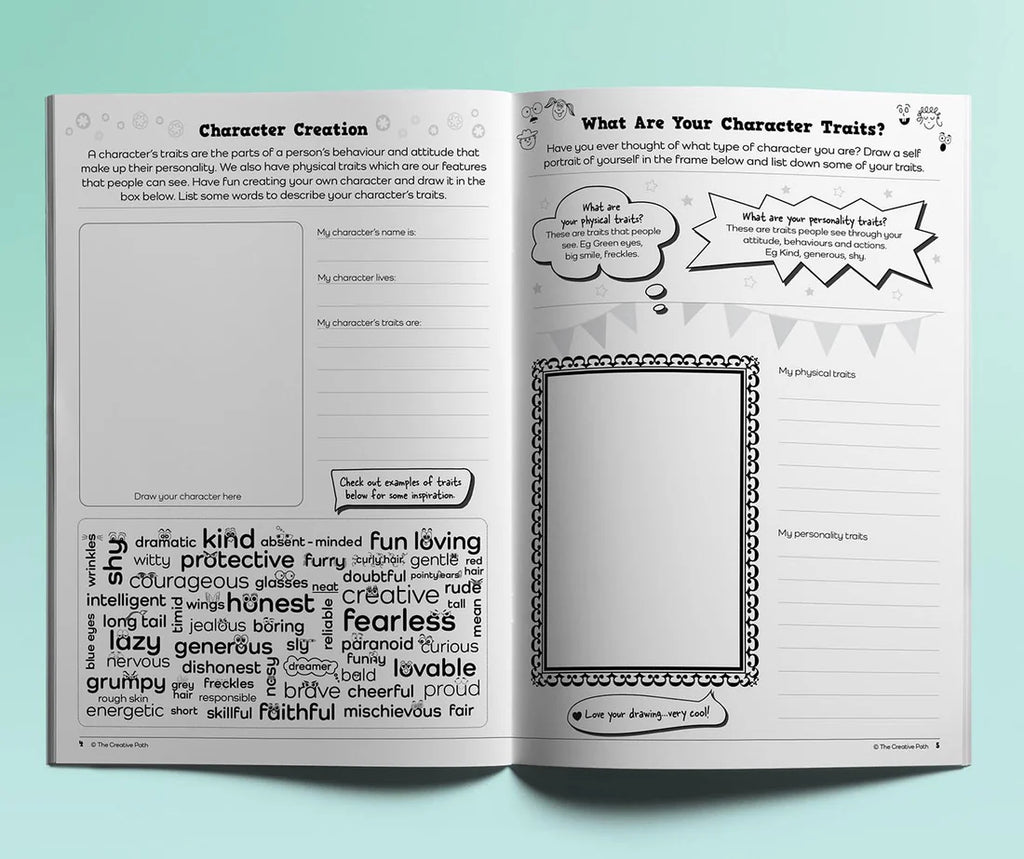 Character Creation
A character's traits are the parts of a person's behaviour and attitude that
make up their personality. We also have physical traits which are our features
that people can see. Have fun creating your own character and draw it in the
box below. List some words to describe your character's traits.
My character's name is:
My character lives:
My character's traits are:
Draw your character here
Check out examples of traits
below for some inspiration.
wrinkles
shy
dramatic kind absent-minded fun loving
witty protective furry curly hair gentle red hair
courageous glasses neat doubtful pointy ears
intelligent timid wings honest reliable creative rude
tall
mean
blue eyes
long tail jealous boring fearless
lazy generous sly paranoid curious
nervous dishonest nosy dreamer funny lovable
bald
grumpy grey hair freckles brave cheerful proud
rough skin responsible
energetic short skillful faithful mischievous fair
4 © The Creative Path
What Are Your Character Traits?
Have you ever thought of what type of character you are? Draw a self
portrait of yourself in the frame below and list down some of your traits.
What are
your physical traits?
These are traits that people
see. Eg Green eyes,
big smile, freckles.
What are your personality traits?
These are traits people see through your
attitude, behaviours and actions.
Eg Kind, generous, shy.
My physical traits
My personality traits
Love your drawing...very cool!
© The Creative Path 5